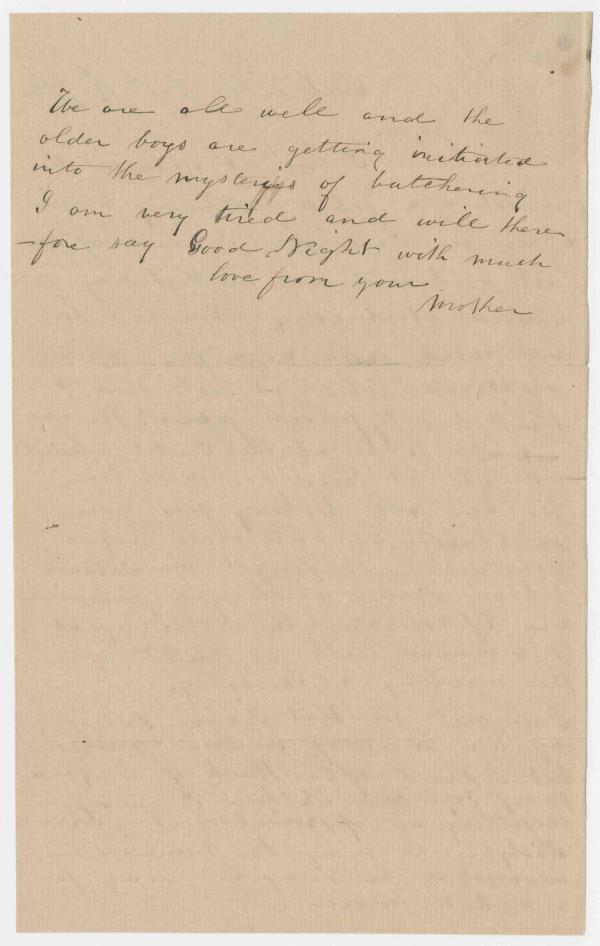 We are all well and the
older boys are getting initiated
into the mysteries of butchering
I am very tired and will there
-fore say Good Night with much
love from your
Mother